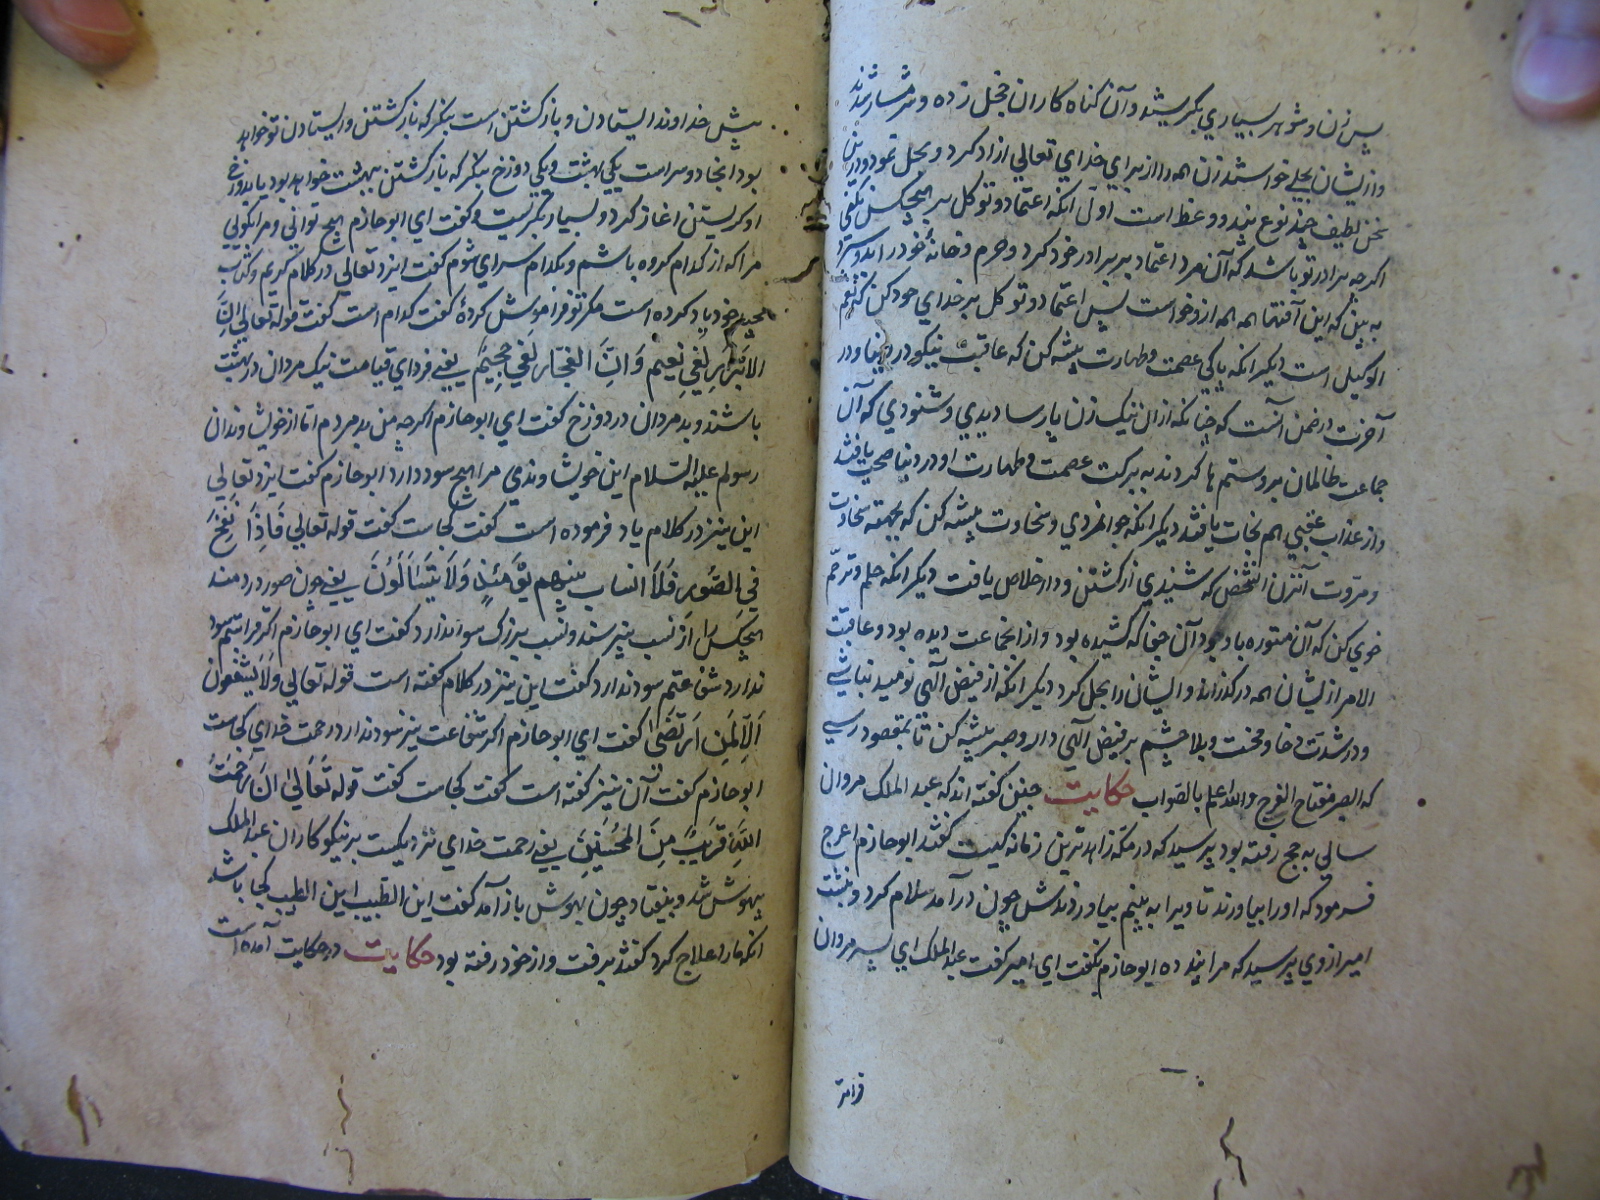 پس زن و شوهر بسیاری بگریستند و آن گناه کاران خجل زده و شرمسار شدند
و از ایشان بحلی خواستند زن همه را از برای خدای تعالی ازاد کرد و بحل نمود و درین
سخن لطیف چند نوع پند و وعظ است اول انکه اعتماد و توکل بر هیچکس نکنی
اکرچه برادر تو باشد که آن مرد اعتماد بر برادر خود کرد و حرم و خانهٔ خود را بدو سپرد
به بین که این آفتها همه از وخواست پس اعتماد و توکل بر خدای خود کن که نعم
الوکیل است دیکر انکه پاکی عصمت و طهارت پیشه کن که عاقبت نیکو در دنیا و در
آخرت در ضمن آنست که چنانکه از ان نیک زن پارسا دیدی و شنودی که آن
جماعت ظالمان برو ستم ها کردند به برکت عصمت و طهارت او در دنیا صحت یافتند
و از عذاب عقبی هم نجات یافتند دیکر انکه جوانمردی و سخاوت پیشه کن که بجهته سخاوت
و مروت آنزن انشخص که شنیدی از کشتن و دار خلاص یافت دیکر انکه حلم و ترحم
خوی کن که آن مستوره باوجود آن جفا که کشیده بود و از انجماعت دیده بود و عاقبت
الامر از ایشان همه در گذرانید و ایشان را بحل کرد دیکر انکه از فیض الهی نومید نباشی
و در شدت و جفا و محنت و بلا چشم بر فیض الهی دار و صبر پیشه کن تا بمقصود رسی
که الصبر مفتاح الفرج والله اعلم بالصواب حکایت چنین کفته اند که عبد الملک مروان
سالی به حج رفته بود پرسید که در مکه زاهدترین زمانه کیست کفتند ابوحازم اعرج
فرمود که او را بیاورند تا ویرا به بینم بیاوردندش چون در آمد سلام کرد و بنشت
امیر از وی پرسید که مرا پند ده ابوحازم بکفت ای امیر کفت عبد الملک ای پسر مروان
پیش خداوند ایستادن و بازکشتن است بنکر که بازکشتن و ایستادن تو خواهد
بود انجا دو سراست یکی بهشت و یکی دوزخ بنکر که بازکشتن ببهشت خواهد بود یا بدوزخ
او کریستن اغاز کرد و بسیار بکریست و کفت ای ابوحازم هیچ توانی و مرا بکویی
مرا که از کدام کروه باشم و بکدام سرای شوم کفت ایزد تعالی در کلام کریم و کتاب
مجید خود یاد کرده است مکر تو فراموش کردهٔ کفت کدام است کفت قوله تعالی اِنَّ
الاَبْرَارَ لَفِی نَعِیم وَ اِنَّ الفُجَّارَ لَفِی جَحِیم یعنے فردای قیامت نیک مردان در بهشت
باشند و بد مردان در دوزخ کفت ای ابوحازم اکرچه من بد مردم اما از خویشاوندان
رسولم علیه السلام این خویشاوندی مرا هیچ سود دارد ابوحازم کفت ایزد تعالی
این نیز در کلام یاد فرموده است کفت کجاست کفت قوله تعالی فَاِذَا نُفِخَ
فی الصُّورِ فَلَا انساب بینهم یَوْمَئِذٍ وَلَا یَتَسَالَوُنَ یعنے چون صور دردمند
هیچکس را از نسب نپرسند و نسب بزرک سود ندارد کفت ای ابوحازم اکر قرابتم سود
ندارد شفاعتم سود ندارد کفت این نیز در کلام کفته است قوله تعالی وَلَا یَشْفَعُونَ
اَلاَّ لِمَنِ اَرْتَضَی کفت ای ابوحازم اکر شفاعت نیز سود ندارد رحمت خدای کجاست
ابوحازم کفت آن نیز کفته است کفت کجاست کفت قوله تَعَالیٰ اِنَّ رَحْمَتُ
اللهِ قَرِیبٌ مِنَ المُحْسِنِینَ یعنے رحمت خدای نزدیکست بر نیکوکاران عبد الملک
بیهوش شد و بیفتاد چون بهوش باز آمد کفت این الطبیب این الطبیب کجا باشد
انکه ما را علاج کرد کفتند برفت و از خود رفته بود حکایت در حکایت آمده است